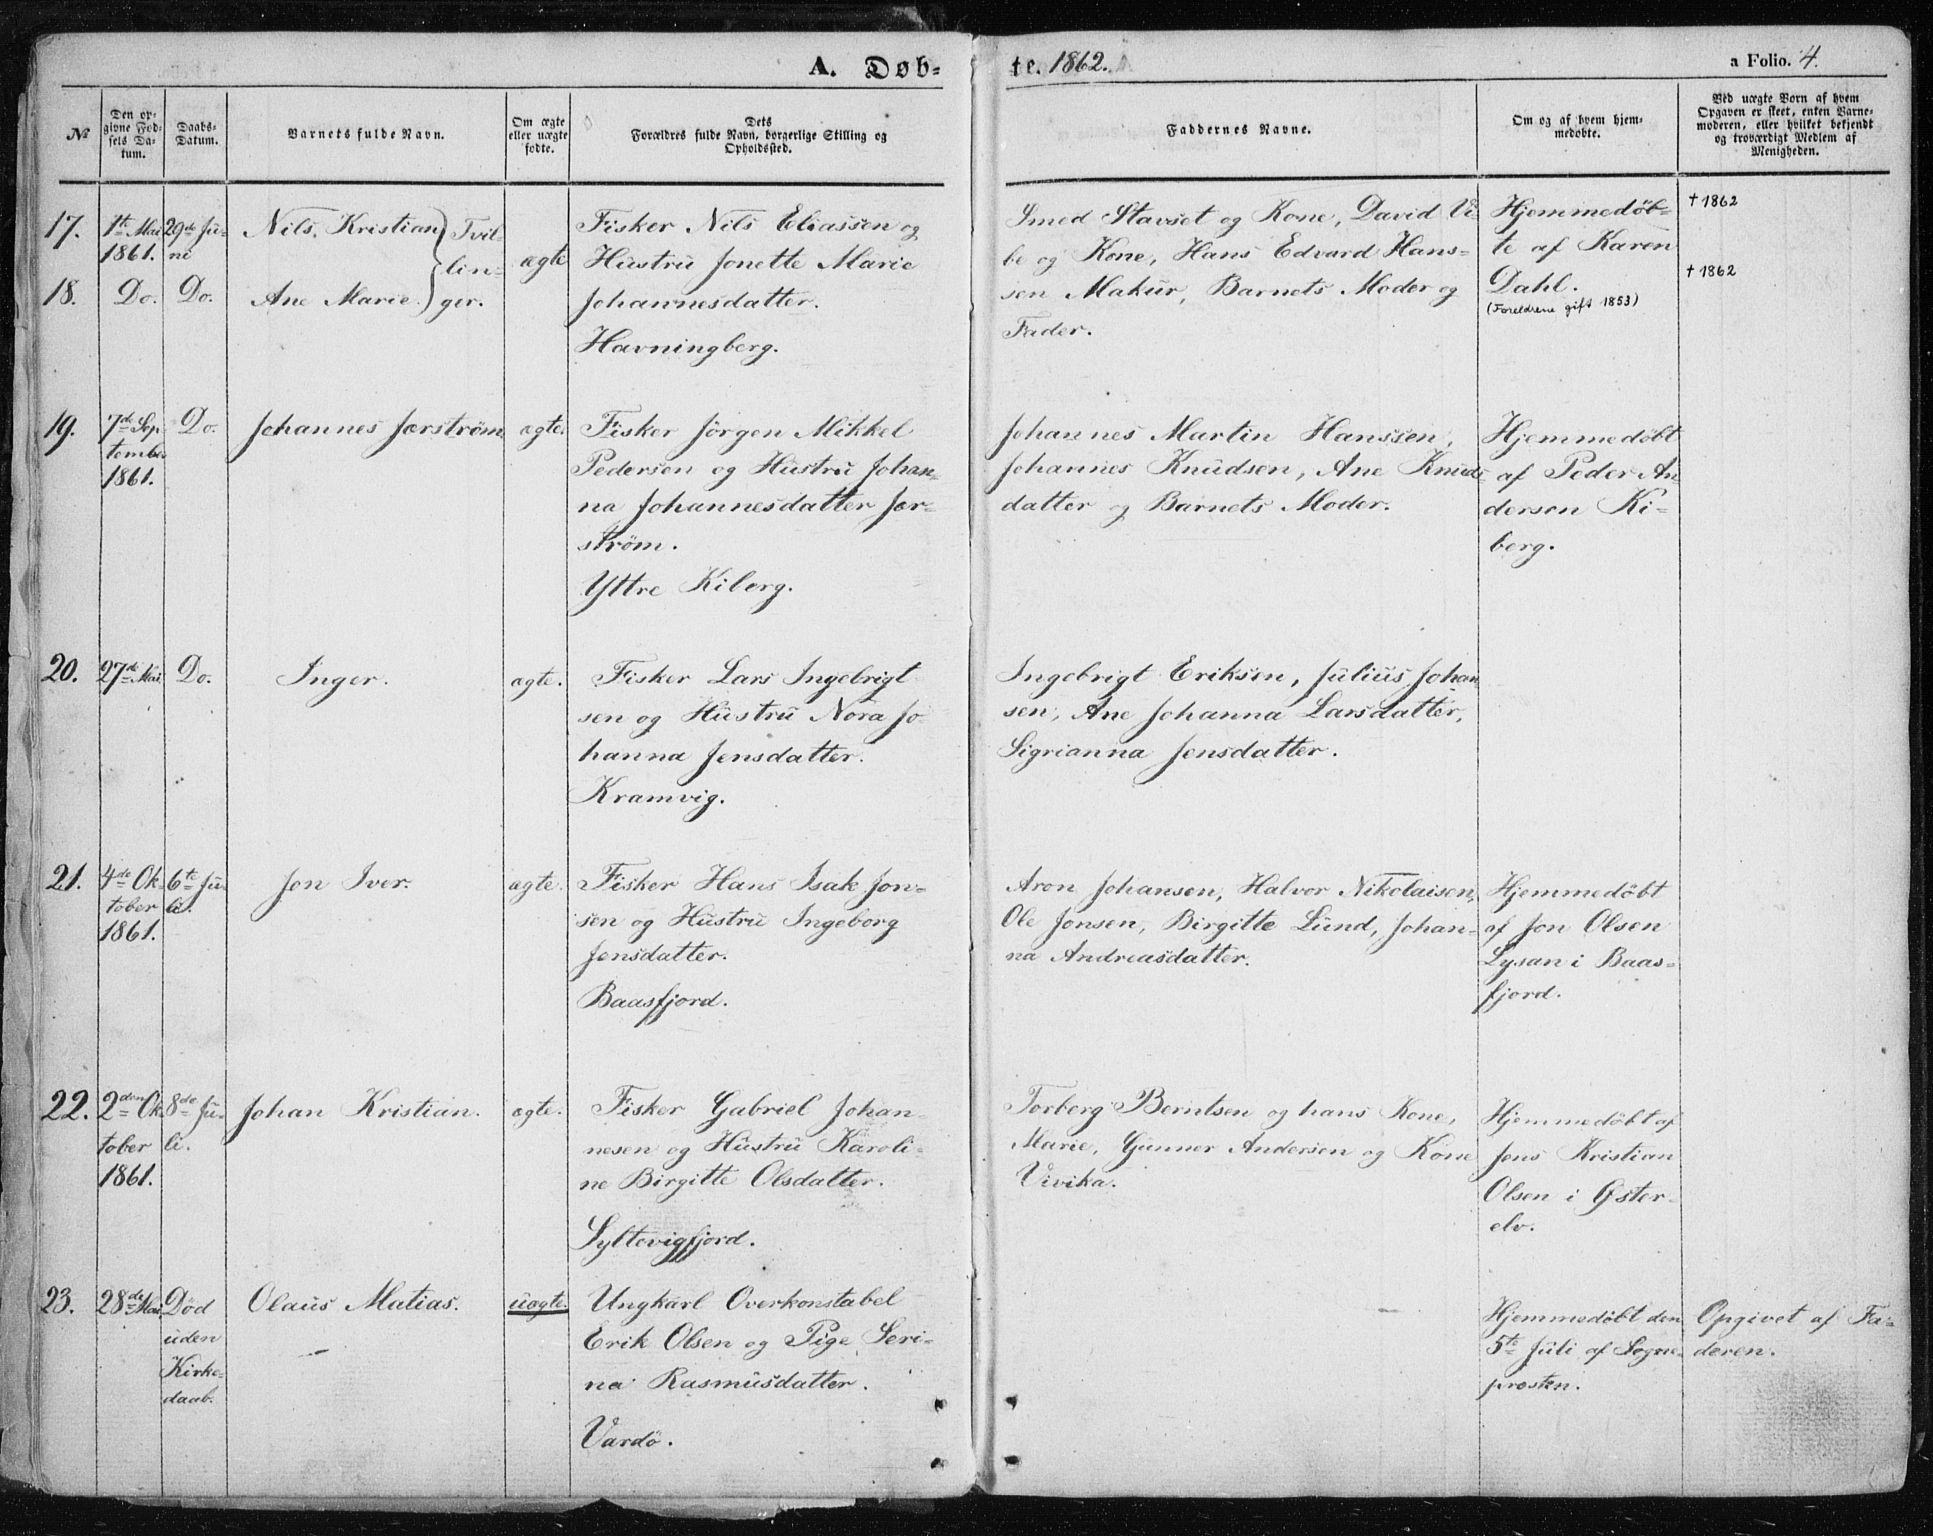 A. Døb-
te. 1862.
a Folio. 4.
№
Den op-
givne Fød-
sels Da-
tum.
Daabs-
Datum.
Barnets fulde Navn.
Om ægte
eller uægte
fødte.
Dets
Forældres fulde Navn, borgerlige Stilling og
Opholdssted.
Faddernes Navne.
Om og af hvem hjem-
medøbte.
Ved uægte Børn af hvem
Opgaven er skeet, enten Barne-
moderen, eller hvilket bekjendt
og troværdigt Medlem af
Menigheden.
17.
1te Mai
1861.
29de Ju-
ni
Nils Kristian
18.
Do.
Do.
Ane Marie.
Tvil-
lin-
ger.
ægte
Fisker Nils Eliassen og
Hustru Jonette Marie
Johannesdatter.
Havningberg.
Smed Stavset og Kone, David Vi-
be og Kone, Hans Edvard Hans-
sen Makur, Barnets Moder og
Fader.
Hjemmedøb-
te af Karen
Dahl.
(Foreldrene gift 1853)
† 1862
† 1862
19.
7de Sep-
tember
1861.
Do.
Johannes Jærström
ægte.
Fisker Jörgen Mikkel
Pedersen og Hustru Johan-
na Johannesdatter Jær-
ström.
Yttre Kiberg.
Johannes Martin Hanssen,
Johannes Knudsen, Ane Knuds-
datter og Barnets Moder.
Hjemmedøbt
af Peder An
dersen Ki-
berg.
20.
27de Mai
Do.
Inger.
ægte.
Fisker Lars Ingebrigt
sen og Hustru Nora Jo
hanna Jensdatter.
Kramvig.
Ingebrigt Eriksen, Julius Johan
sen, Ane Johanna Larsdatter,
Sigrianna Jensdatter.
21.
4de Ok-
tober
1861.
6te Ju-
li.
Jon Iver.
ægte.
Fisker Hans Isak Jon-
sen og Hustru Ingeborg
Jensdatter.
Baasfjord.
Aron Johansen, Halvor Nikolaisen,
Ole Jonsen, Birgitte Lund, Johan-
na Andreasdatter.
Hjemmedøbt
af Jon Olsen
Lysan i Baas-
fjord.
22.
2den Ok-
tober
1861.
8de Ju-
li.
Johan Kristian.
ægte.
Fisker Gabriel Johan-
nesen og Hustru Karoli-
ne Birgitte Olsdatter.
Syltevigfjord.
Torberg Berntsen og hans Kone,
Marie, Gunner Andersen og Kone
Vivika.
Hjemmedøbt af
Jens Kristian
Olsen i Øster-
elv.
23.
28de Mai
Død
uden
Kirke-
daab.
Olaus Matias.
uægte.
Ungkarl Overkonstabel
Erik Olsen og Pige Seri-
na Rasmusdatter.
Vardö.
Hjemmedøbt den
5te Juli af Sogne-
presten.
Opgivet af Fa-
deren.